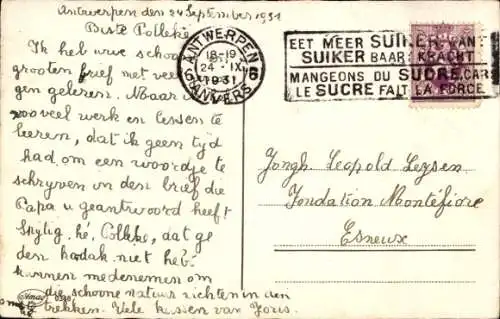 Antwerpen den 24 September 1931
Beste Polleke
Ik heb uwe schoone
grooten brief met veel
gen gelezen. Maar
zooveel werk en lessen te
leeren, dat ik geen tijd
had om een woordje te
schryven in den brief die
Papa u geantwoord heeft
Spytig, hé, Polleke, dat ge
den kodak niet hebt
kunnen medenemen om
die schoone natuur richten in den
trekken. Vele kussen van Joris.
ANTWERPEN
18-19
24 IX
1931
6 6
ANVERS
EET MEER SUIKER WANT
SUIKER BAART KRACHT
MANGEONS DU SUCRE, CAR
LE SUCRE FAIT LA FORCE
Jongh. Leopold Leysen
Fondation Montéfiore
Esneux